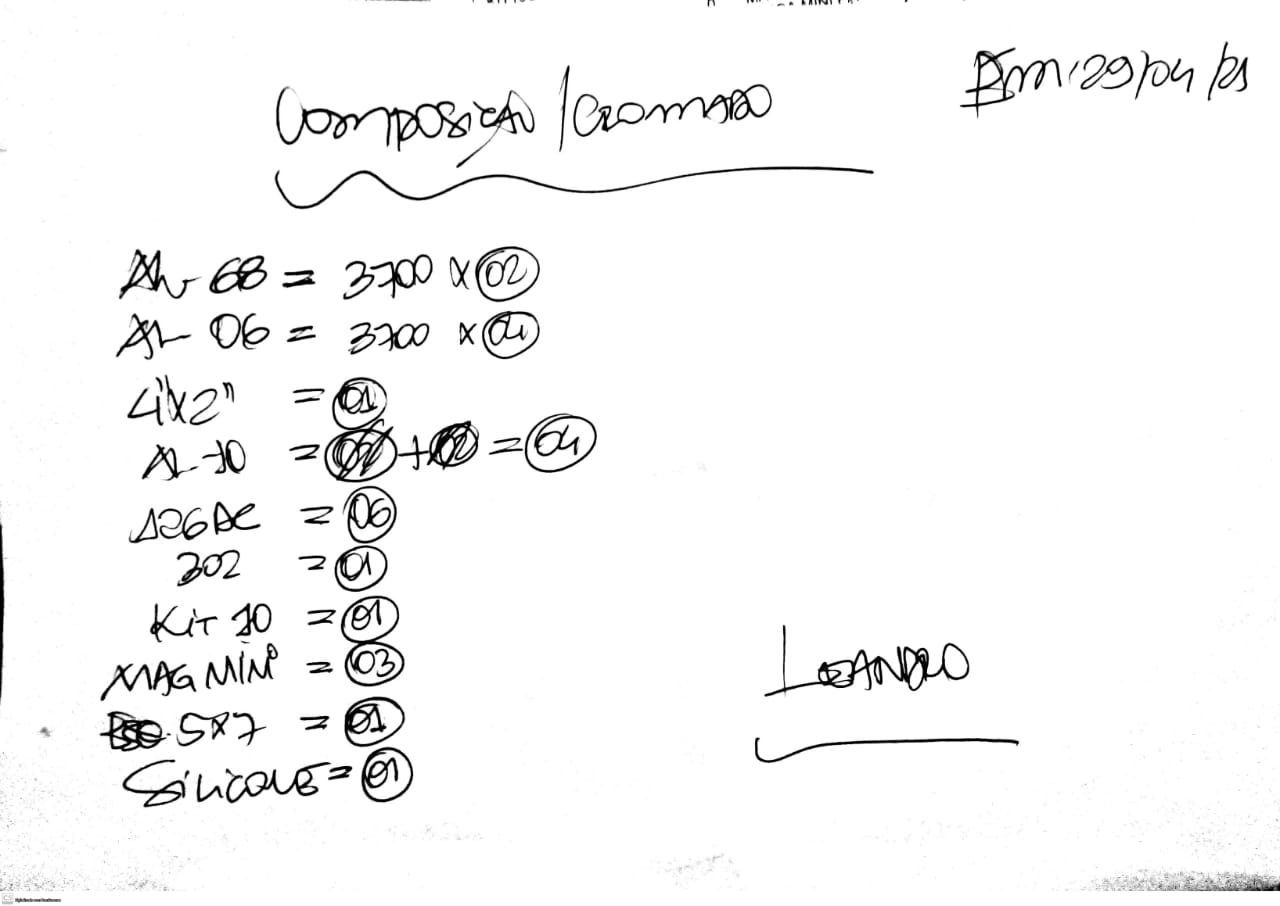 Em: 29/04/21
Composição / Cromado
AL-68 = 3700 x 02
AL-06 = 3700 x 04
4"x2" = 01
AL-10 = 04
126AC = 06
302 = 01
Kit 10 = 01
MAG MINI = 03
5x7 = 01
Silicone = 01
Leandro